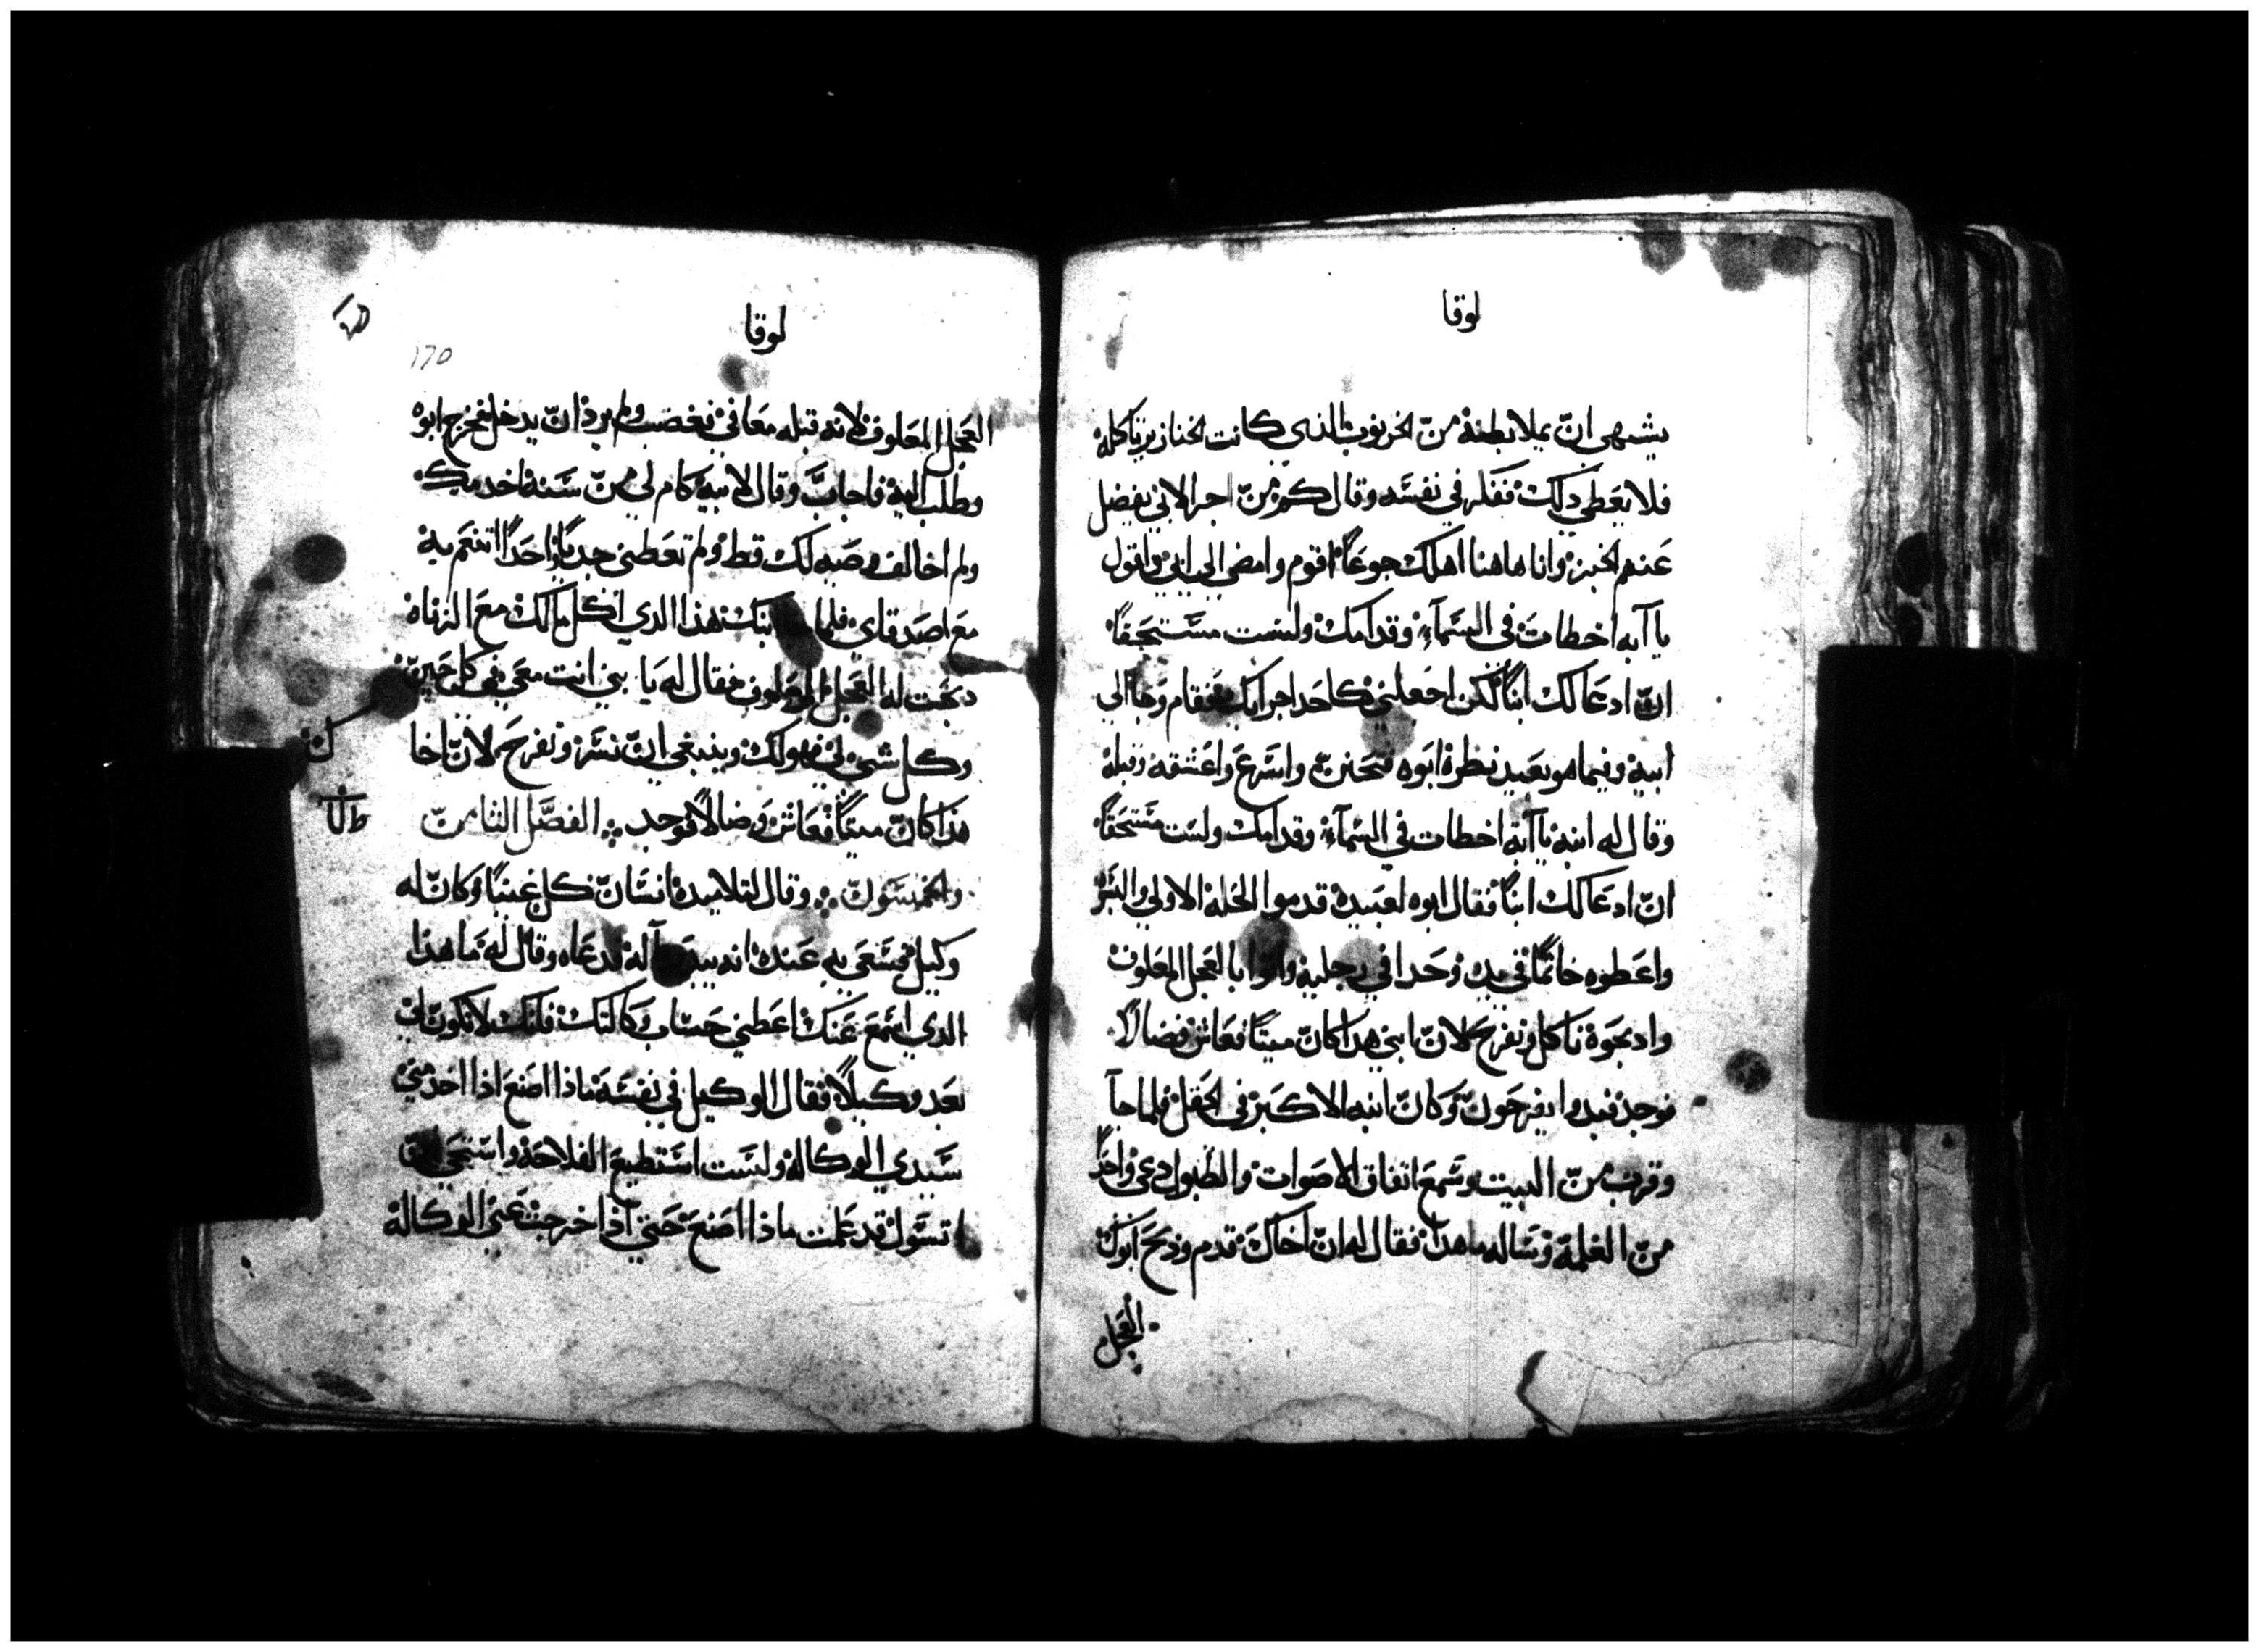 لوقا
يشتهى ان يملا بطنه من الخرنوب الذى كانت الخنازير تاكله
فلا يعطي دلك ففكر في نفسه وقال كم من اجرا لابي يفضل
عنهم الخبز وانا هاهنا اهلك جوعاً اقوم وامضي الى ابي واقول
يا آبه اخطات في السمآء وقدامك ولست مستحقاً
ان ادعا لك ابناً لكن اجعلني كاحد اجرايك فقام وجا الي
ابيه وفيما هو بعيد نظره ابوه فتحنن واسرع واعتنقه وقبله
وقال له ابنه يا آبه اخطات في السمآء وقدامك ولست مستحقاً
ان ادعا لك ابناً فقال ابوه لعبيده قدموا الحله الاولي
واعطوه خاتماً في يده وحدا في رجليه بالعجل المعلوف
وادبحوه ناكل ونفرح لان ابني هدا كان ميتاً فعاش فضالاً
فوجد فبدوا يفرحون وكان ابنه الاكبر في الحقل فلما جآ
وقرب من البيت وسمع اتفاق الاصوات والطبول دعى واحداً
من الغلمة وساله ما هدا فقال له ان اخاك قدم ودبح ابوك
العجل
لوقا
170
العجل المعلوف لانه قبله معافي فغضب ولم يرد ان يدخل فخرج ابوه
وطلب اليه فاجاب وقال لابيه كام لي من سنة اخدمك
ولم اخالف وصيه لك قط ولم تعطني جدياً واحداً اتنعم به
مع اصدقاي فلما ابنك هذا الدي اكل مالك مع الزناه
دبحت له العجل المعلوف فقال له يا بني انت معي في كل حين
وكل شي لي فهو لك وينبغي ان نسر ونفرح لان اخا
هذا كان ميتاً فعاش وضالاً فوجد الفصل الثامن
والخمسون وقال لتلاميده انسان كل غنيا وكان له
وكيل فسعي به عنده انه يبيد ماله فدعاه وقال له ما هدا
الدي اسمع عنك اعطني حساب وكالتك فانك لا تكون لي
بعد وكيلاً فقال الوكيل في نفسه ماذا اصنع اذا اخد مني
سيدي الوكاله ولست استطيع الفلاحة واستحي ان
اتسول قد علمت ماذا اصنع حتي آذا خرجت عني الوكالة